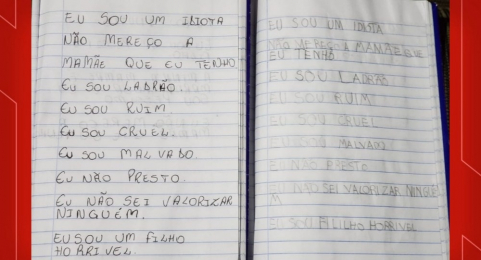 EU SOU UM IDIOTA
NÃO MEREÇO A
MAMÃE QUE EU TENHO
EU SOU LADRÃO.
EU SOU RUIM
EU SOU CRUEL.
EU SOU MALVADO.
EU NÃO PRESTO.
EU NÃO SEI VALORIZAR
NINGUÉM.
EU SOU UM FILHO
HORRIVEL.
EU SOU UM IDIOTA
NÃO MEREÇO A MAMÃE QUE
EU TENHO
EU SOU LADRÃO
EU SOU RUIM
EU SOU CRUEL
EU SOU MALVADO
EU NÃO PRESTO
EU NÃO SEI VALORIZAR NINGUÉ
M
FILILHO HORRIVEL